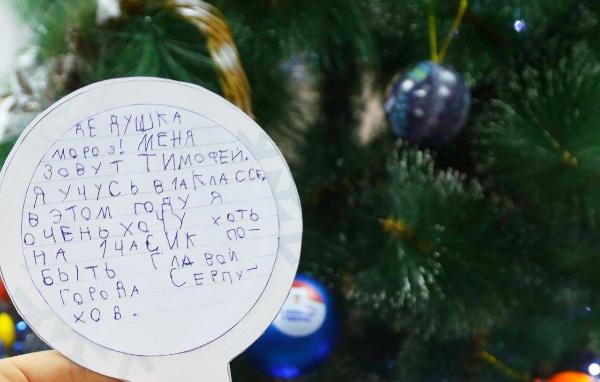 ДЕДУШКА
МОРОЗ! МЕНЯ
ЗОВУТ ТИМОФЕЙ.
Я УЧУСЬ В 1А КЛАССЕ.
В ЭТОМ ГОДУ Я
ОЧЕНЬ ХОЧУ ХОТЬ
НА 1 ЧАСИК ПО-
БЫТЬ ГЛАВОЙ
ГОРОДА СЕРПУ-
ХОВ.